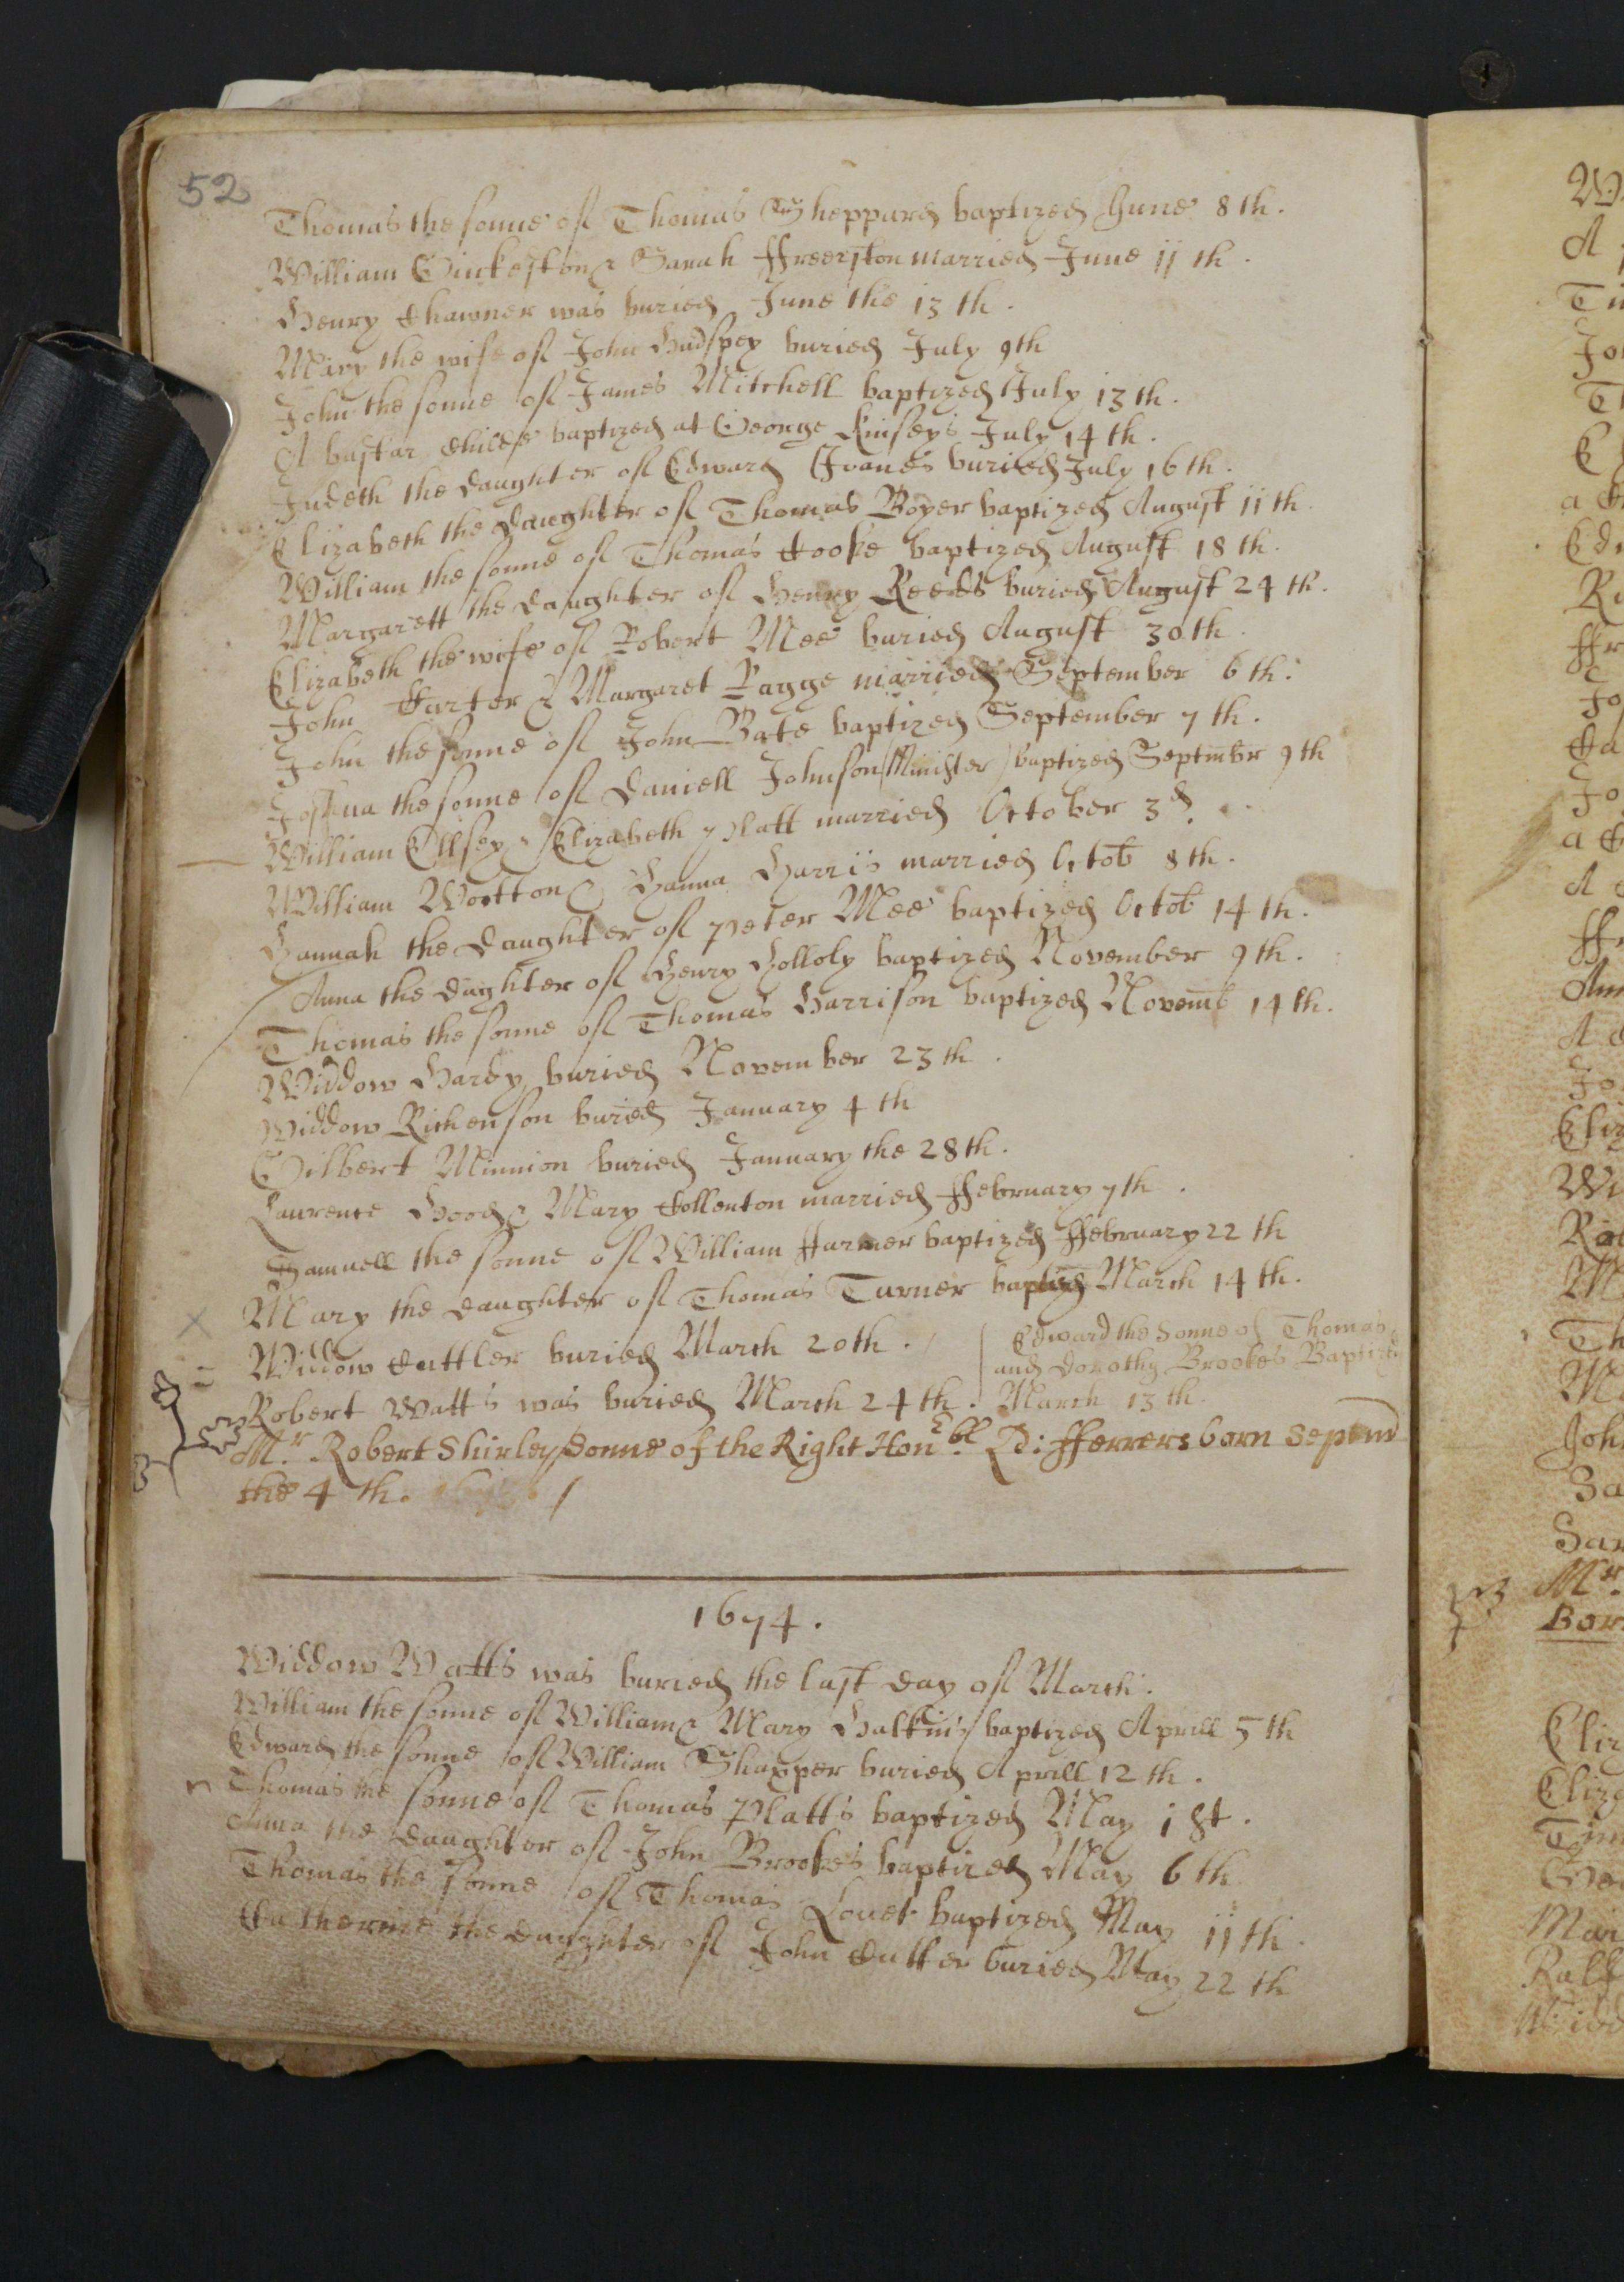 52
Thomas the sonne of Thomas Sheppard baptized June 8th.
William Ginkeston & Sarah ffreeston married June 11th.
Henry Chawner was buried June the 13th.
Mary the wife of John Hudspey buried July 9th
John the sonne of James Mitchell baptized July 13th.
A bastar Childe baptized at George Kinseys July 14th.
Judeth the daughter of Edward buried July 16th.
Elizabeth the daughter of Thomas Boyer baptized August 11th.
William the sonne of Thomas Cooke baptized August 18th.
Margarett the daughter of Henry Reeves buried August 24th.
Elizabeth the wife of Robert Mee buried August 30th.
John Carter & Margaret Ragge married September 6th.
John the sonne of John Bate baptized September 7th.
Joshua the sonne of Daniell Johnson (Minister) baptized Septmbr 9th
William Ellsey & Elizabeth Platt married October 3d.
William Wootton & Hanna Harris married Octob 8th.
Hannah the daughter of Peter Mee baptized Octob 14th.
Anna the dughter of Henry Holloly baptized November 9th.
Thomas the sonne of Thomas Harrison baptized Novemb 14th.
Widdow Hardy buried November 23th.
Widdow Richenson buried January 4th
Gilbert Minnion buried January the 28th.
Laurence Hood & Mary Collenton married ffebruary 7th.
Samuell the sonne of William ffarmer baptized ffebruary 22th
Mary the daughter of Thomas Turner baptized March 14th.
Widdow Cuttler buried March 20th.
Edward the Sonne of Thomas
and Dorothy Brookes Baptized
March 13th.
Robert Watts was buried March 24th.
Mr. Robert Shirley Sonne of the Right Honbl. Ld: fferrers born Septemb
the 4th.
1674.
Widdow Watts was buried the last day of March.
William the sonne of William & Mary baptized Aprill 5th
Edward the sonne of William Sharper buried Aprill 12th.
Thomas the sonne of Thomas Platts baptized May 1st.
Anna the daughter of John Brookes baptized May 6th
Thomas the sonne of Thomas Louet baptized May 11th.
Catherine the daughter of John Cutler buried May 22th